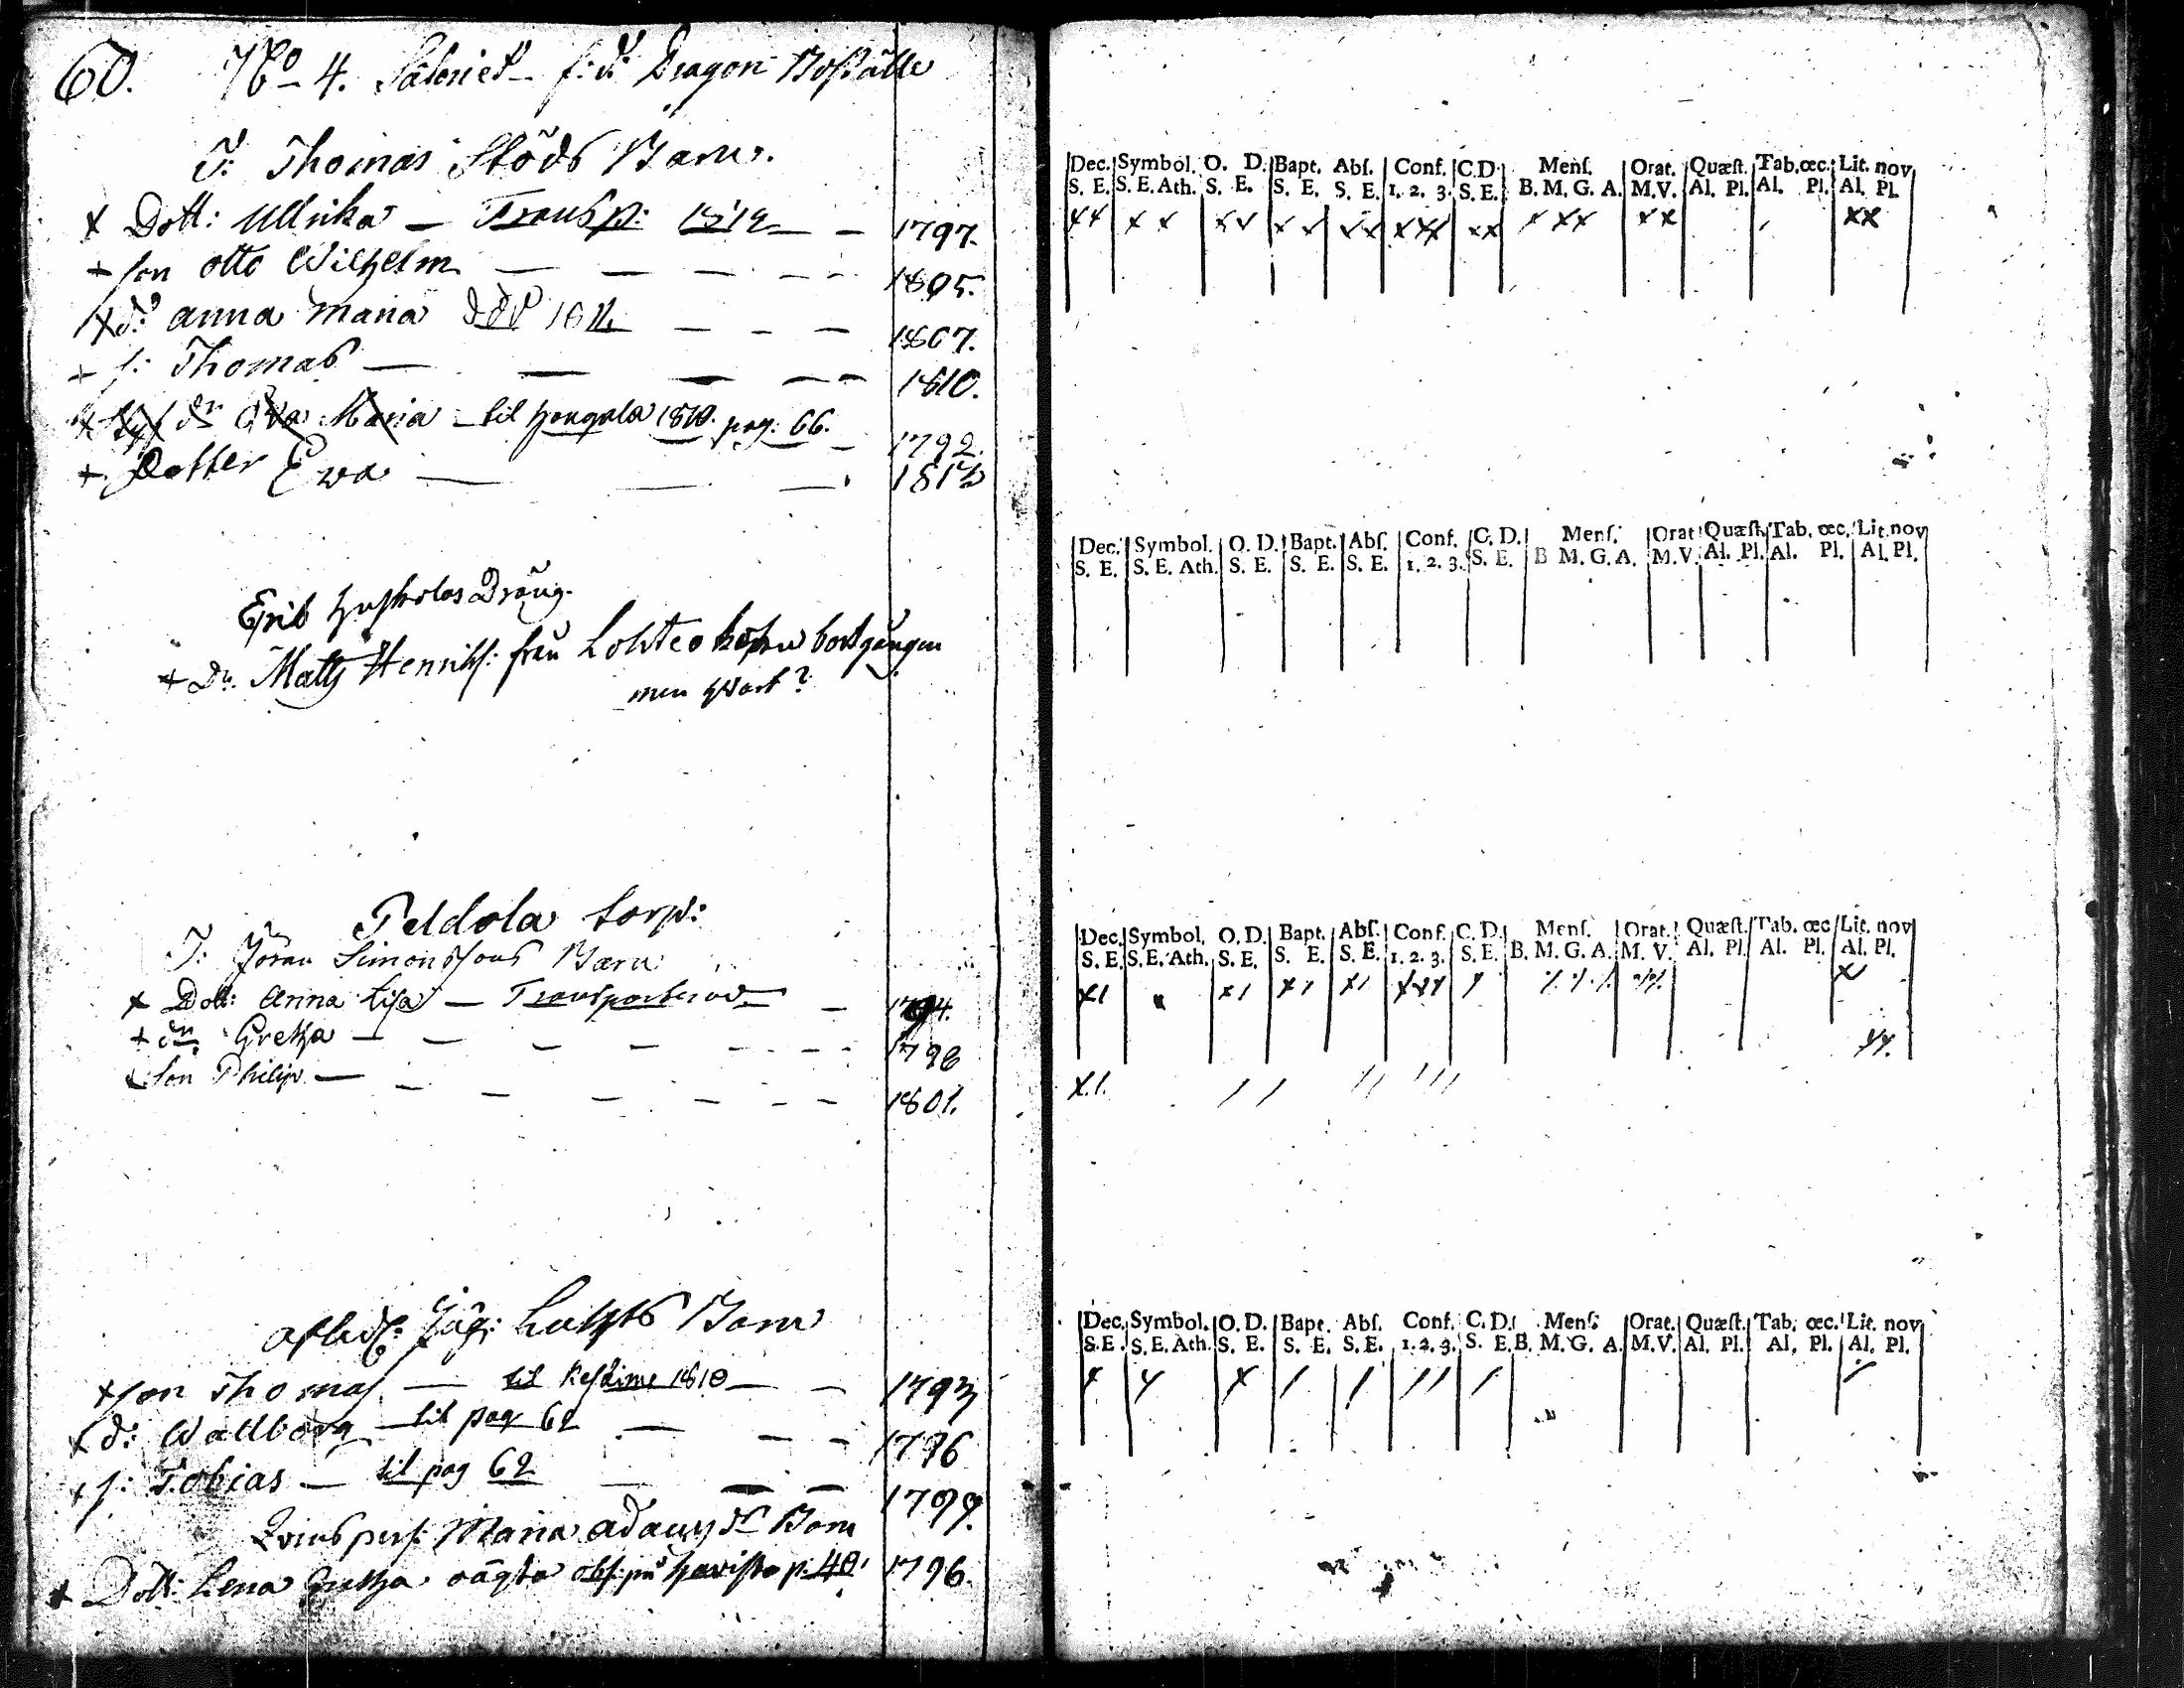 60. No 4. Säteriet f: d: Dragon Boställe
T: Thomas Stöds Barn.
x Dott: Ullrika — Transp: 1812 — 1797.
+ son Otto Wilhelm — 1805.
x d: Anna Maria död 1811 — 1807.
+ s: Thomas — 1810.
Maria — til 1810. pag: 66. — 1792.
+ Dotter Ewa — 1813
Erik Dräng.
+ Dr. Matts Henrikss: från bortgången
men hwart?
Peldola torp:
T: Jöran Simonssons Barn
x Dott: Anna Lisa — Transporterad — 1794.
+ dn Gretha — 1798
x Son Philip — 1801.
Barn
x son Thomas — til 1810 — 1793
x d: Wallborg — til pag 62 — 1796
x s: Tobias — til pag 62 — 1799.
Maria Adamsdr Barn
x Dott: Lena Gretha p. 40. 1796.
Dec. Symbol. O. D. Bapt. Abs. Conf. C.D. Mens. Orat. Quæst. Tab. œc. Lit. nov
S. E. S. E. Ath. S. E. S. E. S. E. 1. 2. 3. S. E. B. M. G. A. M. V. Al. Pl. Al. Pl. Al. Pl.
Dec. Symbol. O. D. Bapt. Abs. Conf. C. D. Mens. Orat Quæst. Tab. œc. Lit. nov
S. E. S. E. Ath. S. E. S. E. S. E. 1. 2. 3. S. E. B M. G. A. M. V. Al. Pl. Al. Pl. Al. Pl.
Dec. Symbol. O. D. Bapt. Abs. Conf. C. D. Mens. Orat. Quæst. Tab. œc Lit. nov
S. E. S. E. Ath. S. E. S. E. S. E. 1. 2. 3. S. E. B. M. G. A. M. V. Al. Pl. Al. Pl. Al. Pl.
Dec. Symbol. O. D. Bapt. Abs. Conf. C. D. Mens. Orat. Quæst. Tab. œc. Lit. nov
S. E. S. E. Ath. S. E. S. E. S. E. 1. 2. 3. S. E. B. M. G. A. M. V. Al. Pl. Al. Pl. Al. Pl.